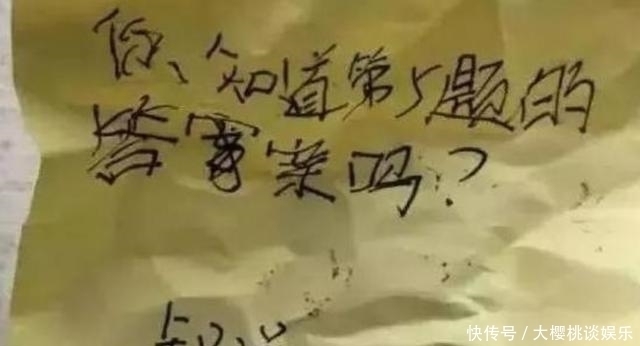 你知道第5题的
答案吗?
快传号 / 大樱桃谈娱乐